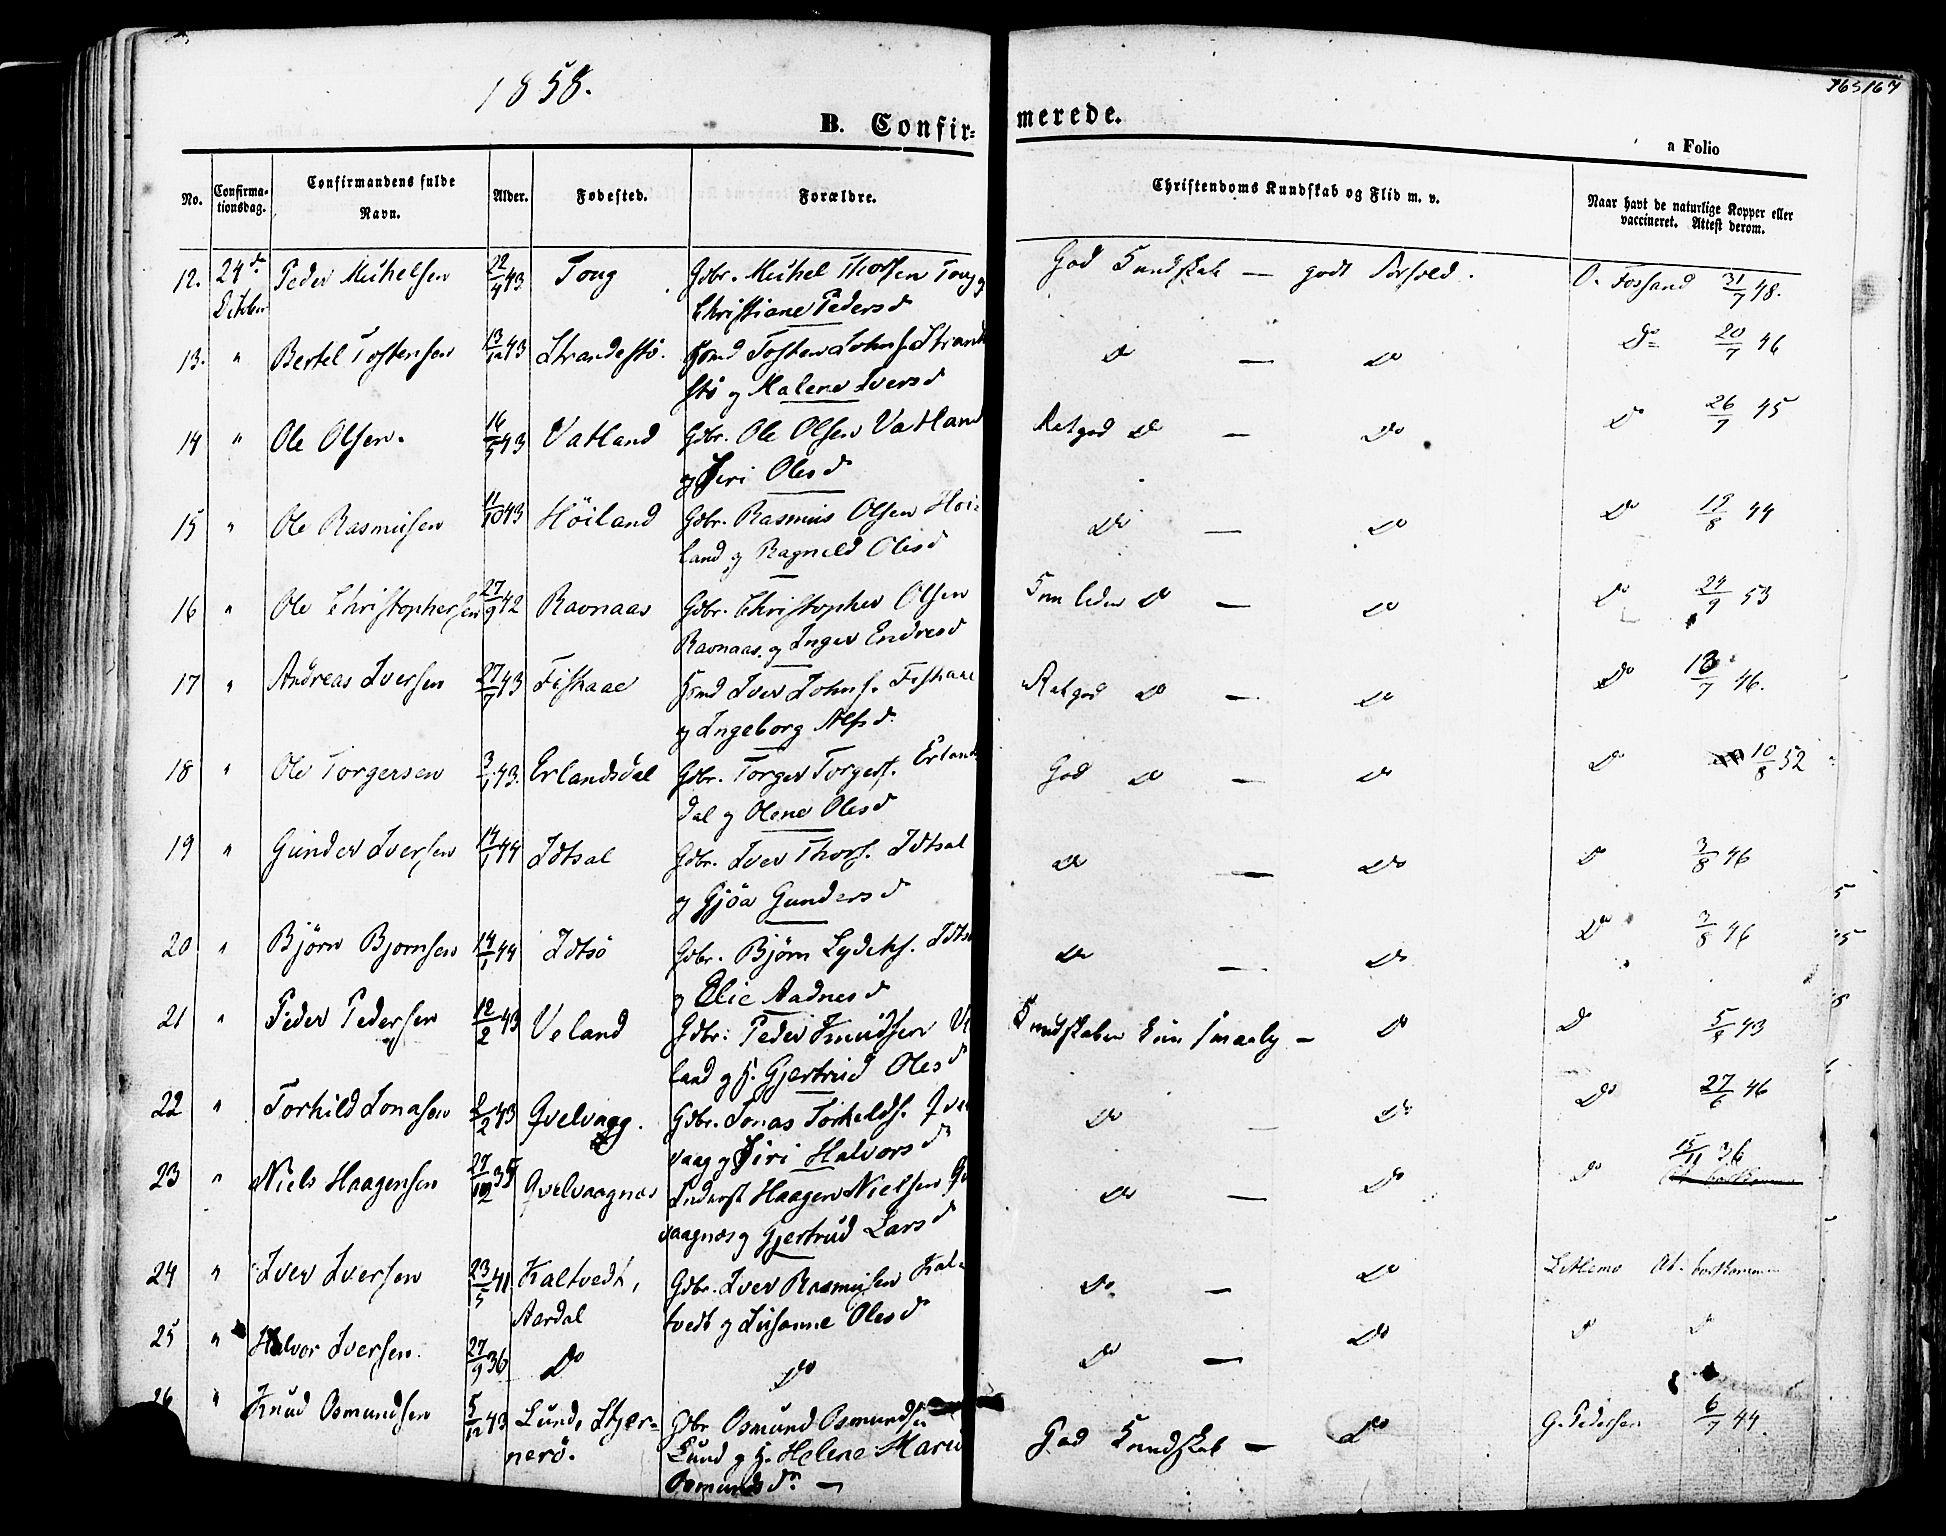 1858.
163 164
B. Confir=
merede.
a Folio
No.
Confirma-
tionsdag.
Confirmandens fulde
Navn.
Alder.
Fødested.
Forældre.
Christendoms Kundskab og Flid m. v.
Naar havt de naturlige Kopper eller
vaccineret. Attest derom.
12. 24de Peder Michelsen 22/4 43 Toug Gdbr. Michel Thorsen Toug og God Kundskab — godt Forhold. O. Fossand 31/7 48.
October Christiane Pedersd
13. " Bertel Tostensen 13/12 43 Strandestø. Hsmd Tosten Johns. Strand Do — Do Do 20/7 46
stø og Malene Iversd
14 " Ole Olsen. 16/5 43 Vatland Gdbr. Ole Olsen Vatland Retgod Do — Do Do 26/7 45
og Siri Olesd
15 " Ole Rasmusen 11/10 43 Höiland Gdbr. Rasmus Olsen Höi- Do — Do Do 19/8 44
land og Ragnild Olesd
16 " Ole Christophersen 27/9 42 Ravnaas Gdbr. Christopher Olsen Do — Do Do 24/9 53
Ravnaas. og Inger Endresd
17 " Andreas Iversen 27/7 43 Fiskaae Hsmd Iver Johns. Fiskaae Retgod Do — Do Do 13/7 46.
og Ingeborg Alfsd.
18 " Ole Torgersen 3/1 43. Erlandsdal Gdbr. Torger Torgers. Erlands God Do — Do Do 10/8 52
dal og Olene Olesd
19 " Gunder Iversen 14/1 44 Idtsal Gdbr. Iver Thors. Idtsal Do — Do Do 3/8 46
og Gjöa Gundersd
20 " Björn Bjornsen 14/1 44 Idtsö Gdbr. Björn Lydeks. Idtsö Do — Do Do 3/8 46
og Elie Aadnesd
21 " Peder Pedersen 12/2 43 Veland Gdbr. Peder Knudsen Ve Kundskaben kun smaalig — Do Do 5/8 43
land og H. Gjertrud Olesd
22 " Torkild Jonasen 2/2 43 Qvelvagg. Gdbr. Jonas Torkilds. Qvel Do — Do Do 27/6 46
vaag og Siri Halvorsd
23 " Niels Haagensen 29/12 35 Qvelvaagnæs Inderst Haagen Nielsen Qv Do — Do Do 15/11 36
vaagnæs og Gjertrud Larsd
24 " Iver Iversen 23/5 41. Kaltvedt, Gdbr. Iver Rasmusen Kal- Do — Do At. bortkommen
Aardal tvedt og Susanne Olesd
25 " Halvor Iversen. 27/9 36 Do Do Do — Do Do Do
26 " Knud Osmundsen 5/12 43 Lund, Stjer- Gbr Osmund Osmunds God Kundskab — Do G. Pedersen 6/7 44.
nerö. Lund og H. Helene Marie
Osmundsdr. —